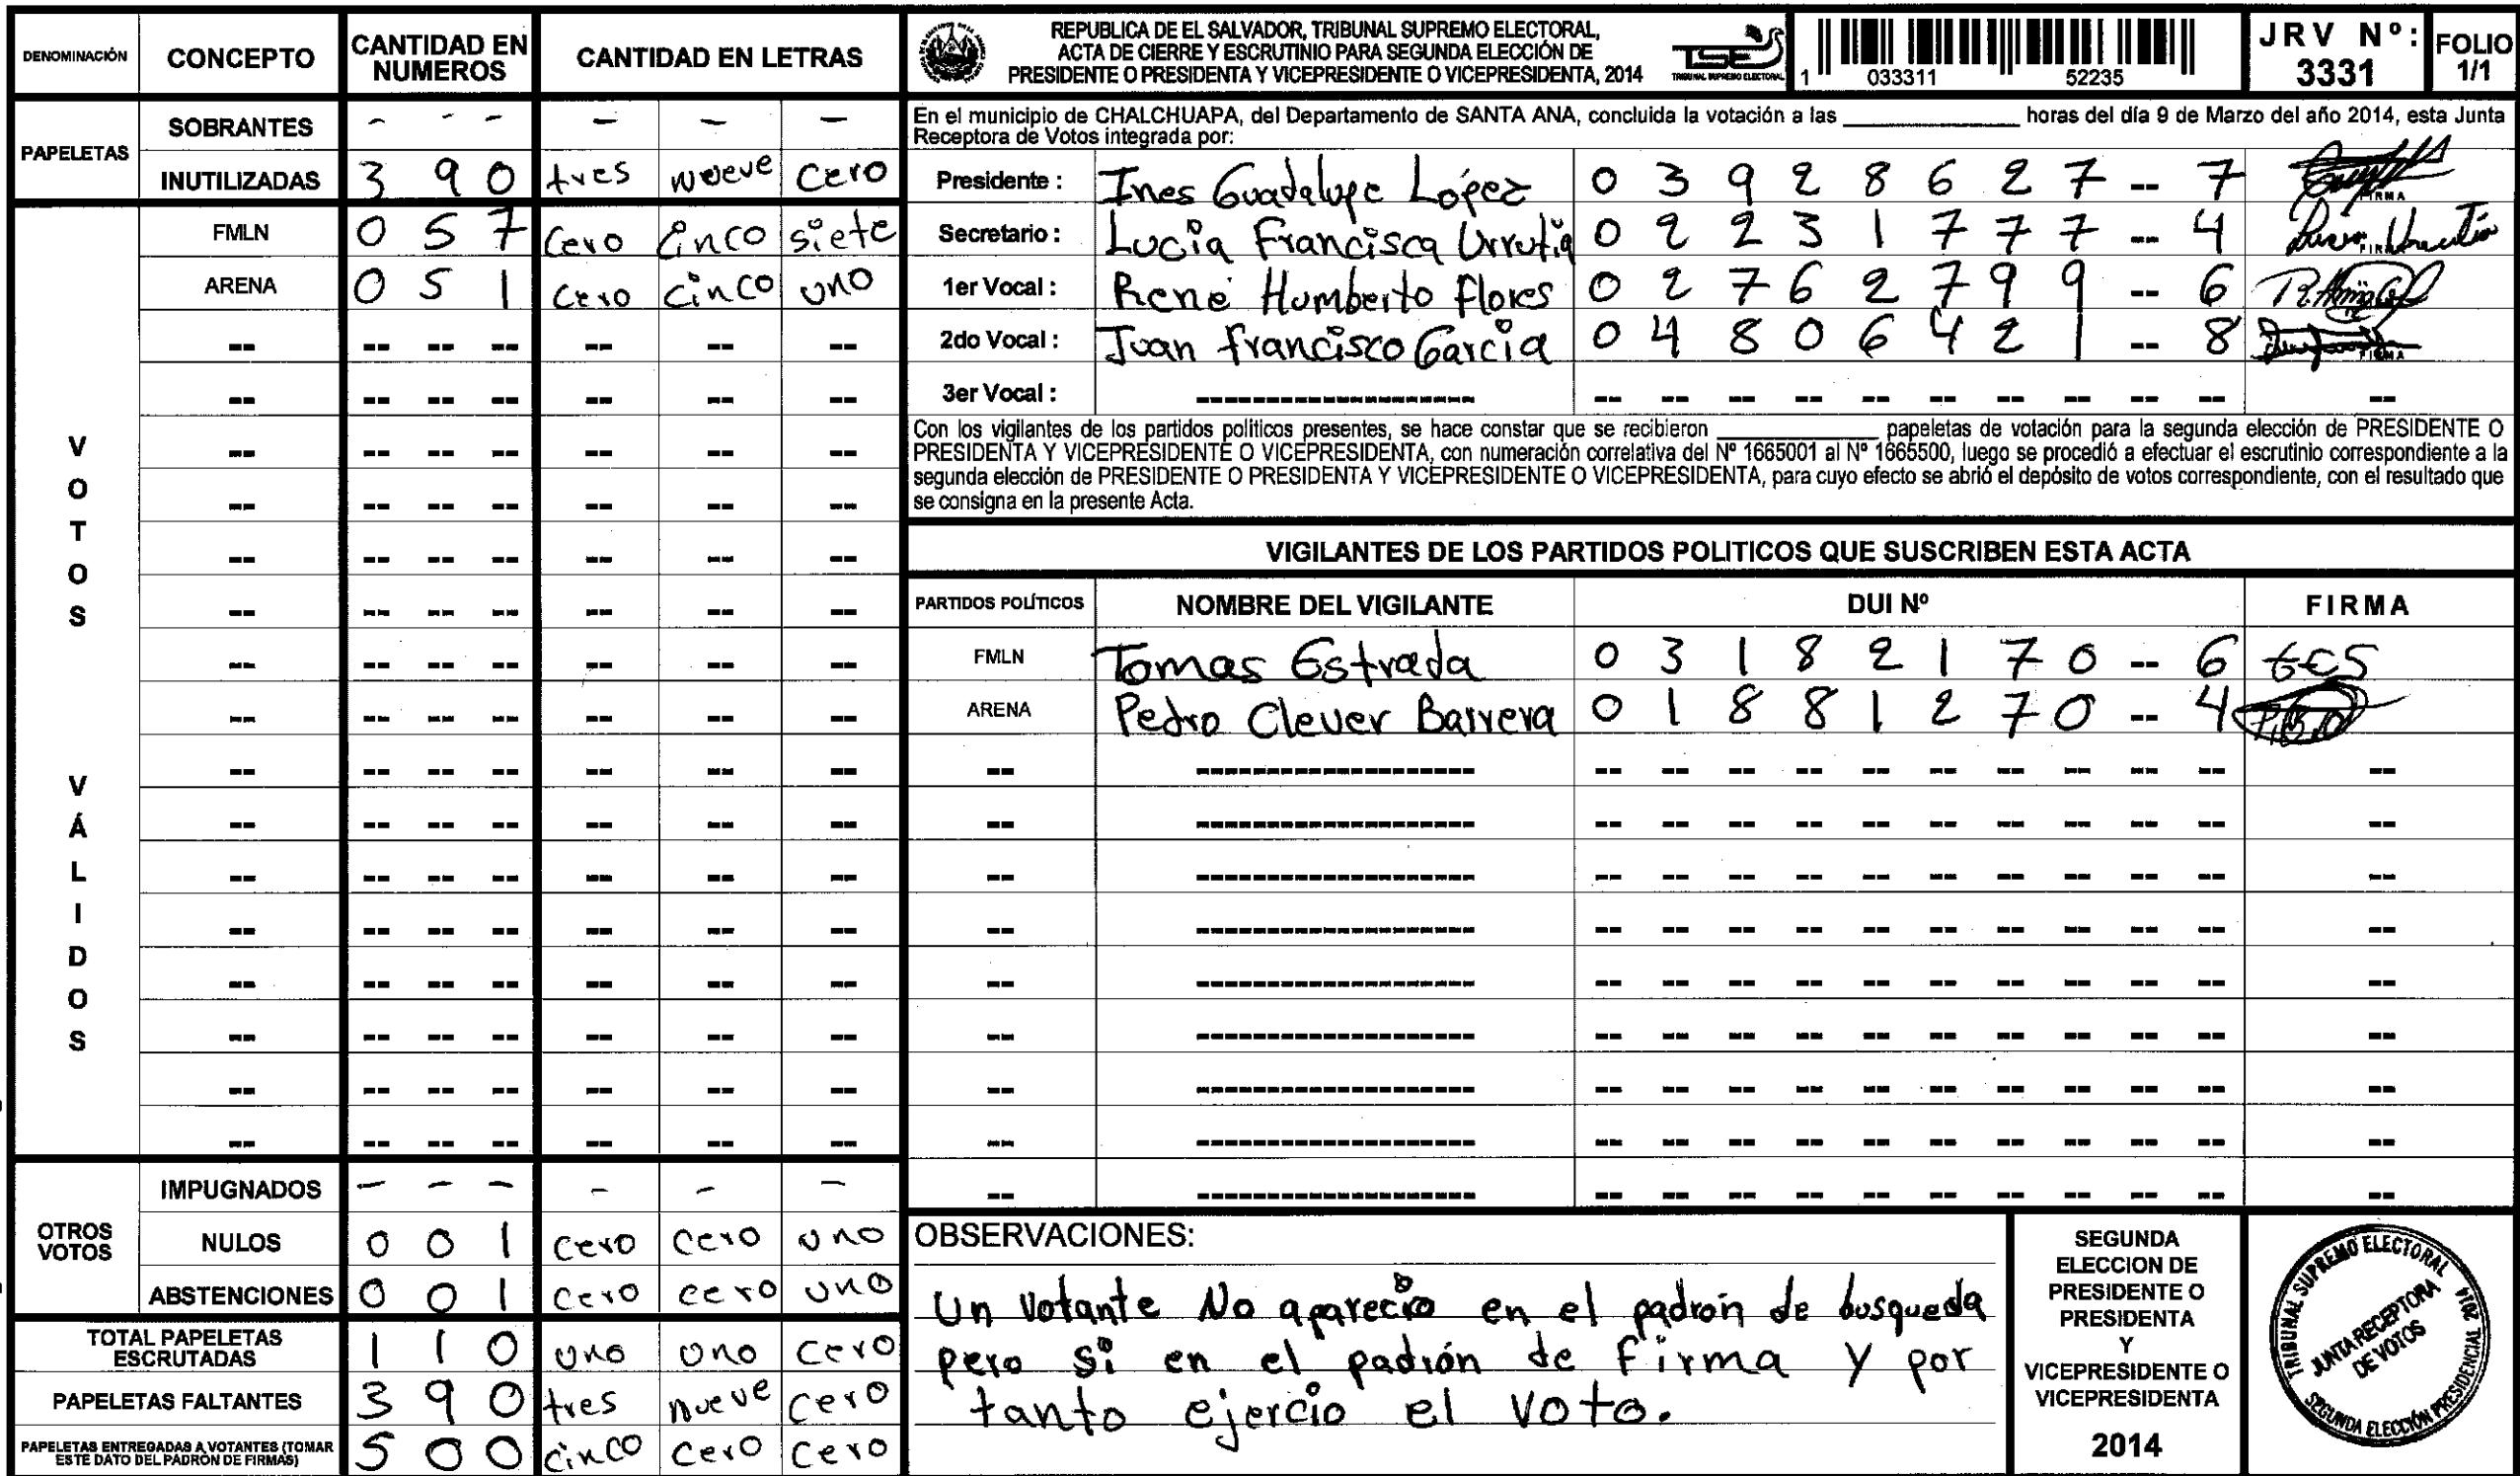 DENOMINACIÓN CONCEPTO CANTIDAD EN NUMEROS CANTIDAD EN LETRAS
PAPELETAS
SOBRANTES - - - - - -
INUTILIZADAS 3 9 0 tres nueve cero
VOTOS VÁLIDOS
FMLN 0 5 7 cero cinco siete
ARENA 0 5 1 cero cinco uno
OTROS VOTOS
IMPUGNADOS - - - - - -
NULOS 0 0 1 cero cero uno
ABSTENCIONES 0 0 1 cero cero uno
TOTAL PAPELETAS ESCRUTADAS 1 1 0 uno uno cero
PAPELETAS FALTANTES 3 9 0 tres nueve cero
PAPELETAS ENTREGADAS A VOTANTES (TOMAR ESTE DATO DEL PADRÓN DE FIRMAS) 5 0 0 cinco cero cero
REPUBLICA DE EL SALVADOR, TRIBUNAL SUPREMO ELECTORAL,
ACTA DE CIERRE Y ESCRUTINIO PARA SEGUNDA ELECCIÓN DE
PRESIDENTE O PRESIDENTA Y VICEPRESIDENTE O VICEPRESIDENTA, 2014
TSE
TRIBUNAL SUPREMO ELECTORAL
1 033311 52235
JRV Nº: 3331
FOLIO 1/1
En el municipio de CHALCHUAPA, del Departamento de SANTA ANA, concluida la votación a las ____ horas del día 9 de Marzo del año 2014, esta Junta
Receptora de Votos integrada por:
Presidente : Ines Guadalupe López 0 3 9 2 8 6 2 7 -- 7 FIRMA
Secretario : Lucia Francisca Urrutia 0 2 2 3 1 7 7 7 -- 4 FIRMA
1er Vocal : René Humberto flores 0 2 7 6 2 7 9 9 -- 6
2do Vocal : Juan francisco Garcia 0 4 8 0 6 4 2 1 -- 8 FIRMA
3er Vocal :
Con los vigilantes de los partidos politicos presentes, se hace constar que se recibieron ____ papeletas de votación para la segunda elección de PRESIDENTE O
PRESIDENTA Y VICEPRESIDENTE O VICEPRESIDENTA, con numeración correlativa del Nº 1665001 al Nº 1665500, luego se procedió a efectuar el escrutinio correspondiente a la
segunda elección de PRESIDENTE O PRESIDENTA Y VICEPRESIDENTE O VICEPRESIDENTA, para cuyo efecto se abrió el depósito de votos correspondiente, con el resultado que
se consigna en la presente Acta.
VIGILANTES DE LOS PARTIDOS POLITICOS QUE SUSCRIBEN ESTA ACTA
PARTIDOS POLÍTICOS NOMBRE DEL VIGILANTE DUI Nº FIRMA
FMLN Tomas Estrada 0 3 1 8 2 1 7 0 -- 6
ARENA Pedro Clever Barrera 0 1 8 8 1 2 7 0 -- 4
OBSERVACIONES:
Un Votante No aparecio en el padron de busqueda
pero si en el padrón de Firma y por
tanto ejercio el voto.
SEGUNDA
ELECCION DE
PRESIDENTE O
PRESIDENTA
Y
VICEPRESIDENTE O
VICEPRESIDENTA
2014
TRIBUNAL SUPREMO ELECTORAL
JUNTA RECEPTORA
DE VOTOS
SEGUNDA ELECCIÓN PRESIDENCIAL 2014